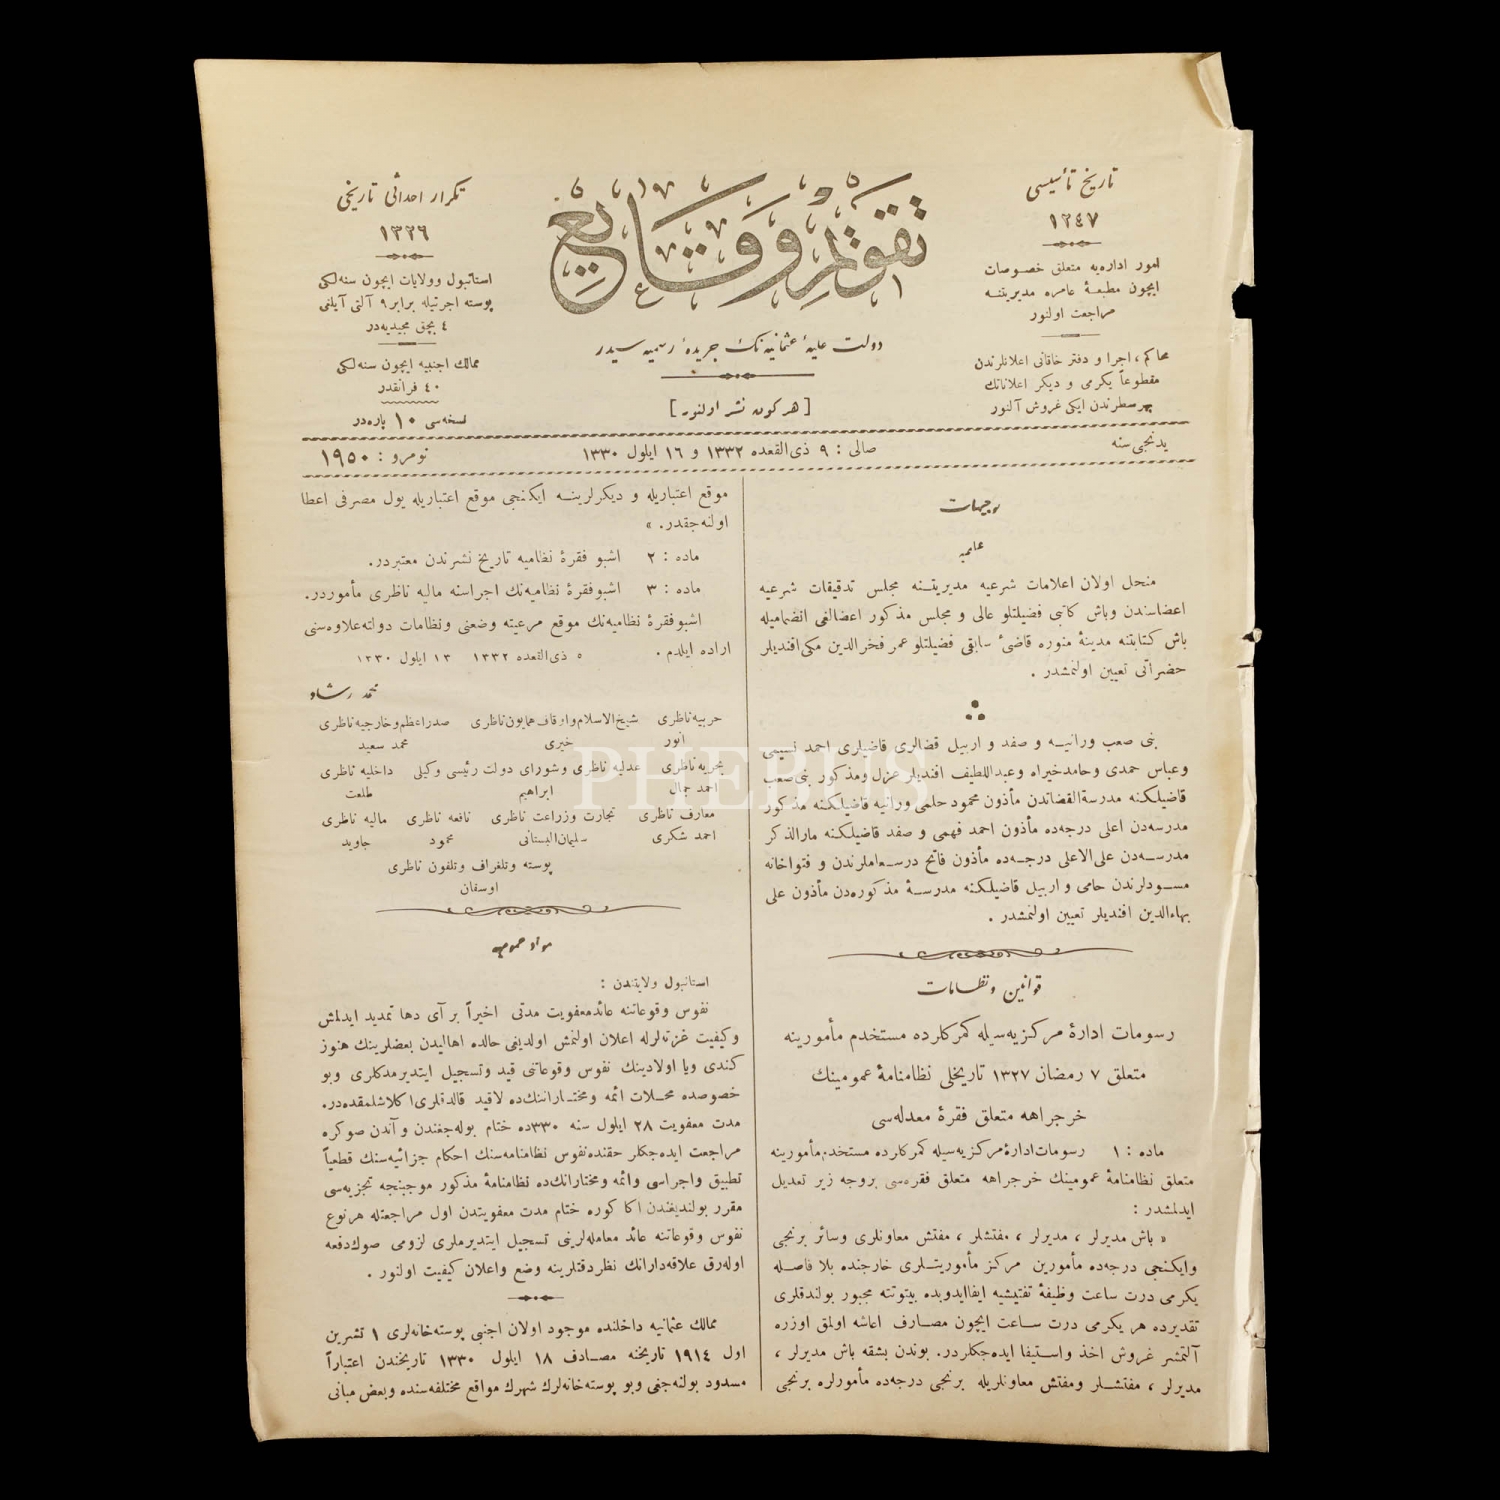 تاریخ تأسیسی
١٢٤٧
امور اداریه متعلق خصوصات
ایچون مطبعهٔ عامره مدیریتنه
مراجعت اولنور
محاکم ، اجرا و دفتر خاقانی اعلانلرندن
مقطوعاً یکرمی و دیکر اعلاناتك
بهر سطرندن ایکی غروش آلنور
تقویم وقایع
دولت علیهٔ عثمانیه‌نك جریدهٔ رسمیه سیدر
[ هرکون نشر اولنور ]
تکرار احداثی تاریخی
١٣٢٦
استانبول وولایات ایچون سنه‌لکی
پوسته اجرتیله برابر ٩ آلتی آیلغی
٤ بچق مجیدیه‌در
ممالك اجنبیه ایچون سنه‌لکی
٤٠ فرانقدر
نسخه‌سی ١٠ پاره‌در
یدنجی سنه
صالی : ٩ ذی‌القعده ١٣٣٢ و ١٦ ایلول ١٣٣٠
نومرو : ١٩٥٠
توجیهات
علمیه
منحل اولان اعلامات شرعیه مدیریتنه مجلس تدقیقات شرعیه
اعضاسندن وباش کاتبی فضیلتلو عالی و مجلس مذکور اعضالغی انضمامیله
باش کتابتنه مدینهٔ منوره قاضیٔ سابقی فضیلتلو عمر فخرالدین مکی‌افندیلر
حضراتی تعیین اولنمشدر .
بنی صعب ورانیه و صفد و اربیل قضالری قاضیلری احمد نسیمی
وعباس حمدی وحامدخیراه وعبداللطیف افندیلر عزل ومذکور بنی صعب
قاضیلکنه مدرسة‌القضاتدن مأذون محمود حلمی ورانیه قاضیلکنه مذکور
مدرسه‌دن اعلی درجه‌ده مأذون احمد فهمی و صفد قاضیلکنه مارالذکر
مدرسه‌دن علی‌الاعلی درجه‌ده مأذون فاتح درسعاملرندن و فتواخانه
مسودلرندن حامی و اربیل قاضیلکنه مدرسهٔ مذکوره‌دن مأذون علی
بهاءالدین افندیلر تعیین اولنمشدر .
قوانین ونظامات
رسومات ادارهٔ مرکزیه‌سیله کمرکلرده مستخدم مأمورینه
متعلق ٧ رمضان ١٣٢٧ تاریخلی نظامنامهٔ عمومینك
خرجراهه متعلق فقرهٔ معدله‌سی
ماده : ١ رسومات ادارهٔ مرکزیه‌سیله کمرکلرده مستخدم مأمورینه
متعلق نظامنامهٔ عمومینك خرجراهه متعلق فقره‌سی بروجه زیر تعدیل
ایدلمشدر :
« باش مدیرلر ، مدیرلر ، مفتشلر ، مفتش معاونلری وسائر برنجی
وایکنجی درجه‌ده مأمورین مرکز مأموریتلری خارجنده بلا فاصله
یکرمی درت ساعت وظیفهٔ تفتیشیه ایفاایدوبده بیتوتته مجبور بولندقلری
تقدیرده هر یکرمی درت ساعت ایچون مصارف اعاشه اولمق اوزره
آلتمشر غروش اخذ واستیفا ایده‌جکلردر. بوندن بشقه باش مدیرلر ،
مدیرلر ، مفتشلر ومفتش معاونلریله برنجی درجه‌ده مأمورلره برنجی
موقع اعتباریله و دیکرلرینه ایکنجی موقع اعتباریله یول مصرفی اعطا
اولنه‌جقدر. »
ماده : ٢ اشبو فقرهٔ نظامیه تاریخ نشرندن معتبردر.
ماده : ٣ اشبوفقرهٔ نظامیه‌نك اجراسنه مالیه ناظری مأموردر.
اشبوفقرهٔ نظامیه‌نك موقع مرعیته وضعنی ونظامات دولته علاوه‌سنی
اراده ایلدم . ٥ ذی‌القعده ١٣٣٢ ١٣ ایلول ١٣٣٠
محمد رشاد
حربیه ناظری شیخ‌الاسلام واوقاف همایون ناظری صدراعظم وخارجیه ناظری
انور خیری محمد سعید
بحریه ناظری عدلیه ناظری وشورای دولت رئیسی وکیلی داخلیه ناظری
احمد جمال ابراهیم طلعت
معارف ناظری تجارت وزراعت ناظری نافعه ناظری مالیه ناظری
احمد شکری سلیمان البستانی محمود جاوید
پوسته وتلغراف وتلفون ناظری
اوسقان
مواد عمومیه
استانبول ولایتندن :
نفوس وقوعاتنه عائدمعفویت مدتی اخیراً بر آی دها تمدید ایدلمش
وکیفیت غزته‌لرله اعلان اولنمش اولدیغی حالده اهالیدن بعضلرینك هنوز
کندی ویا اولادینك نفوس وقوعاتنی قید وتسجیل ایتدیرمدکلری وبو
خصوصده محلات ائمه ومختاراننك‌ده لاقید قالدقلری اکلاشلمقده‌در.
مدت معفویت ٢٨ ایلول سنه ٣٣٠ده ختام بوله‌جغندن وآندن صوکره
مراجعت ایده‌جکلر حقنده نفوس نظامنامه‌سنك احکام جزائیه‌سنك قطعیاً
تطبیق واجراسی وائمه ومختارانك‌ده نظامنامهٔ مذکور موجبنجه تجزیه‌سی
مقرر بولندیغندن اکا کوره ختام مدت معفویتدن اول مراجعتله هرنوع
نفوس وقوعاتنه عائد معامله‌لرینی تسجیل ایتدیرملری لزومی صوك دفعه
اوله‌رق علاقه‌دارانك نظردقتلرینه وضع واعلان کیفیت اولنور .
ممالك عثمانیه داخلنده موجود اولان اجنبی پوسته‌خانه‌لری ١ تشرین
اول ١٩١٤ تاریخنه مصادف ١٨ ایلول ١٣٣٠ تاریخندن اعتباراً
مسدود بولنه‌جغی وبو پوسته‌خانه‌لرك شهرك مواقع مختلفه‌سنده وبعض مبانی
PHEBUS